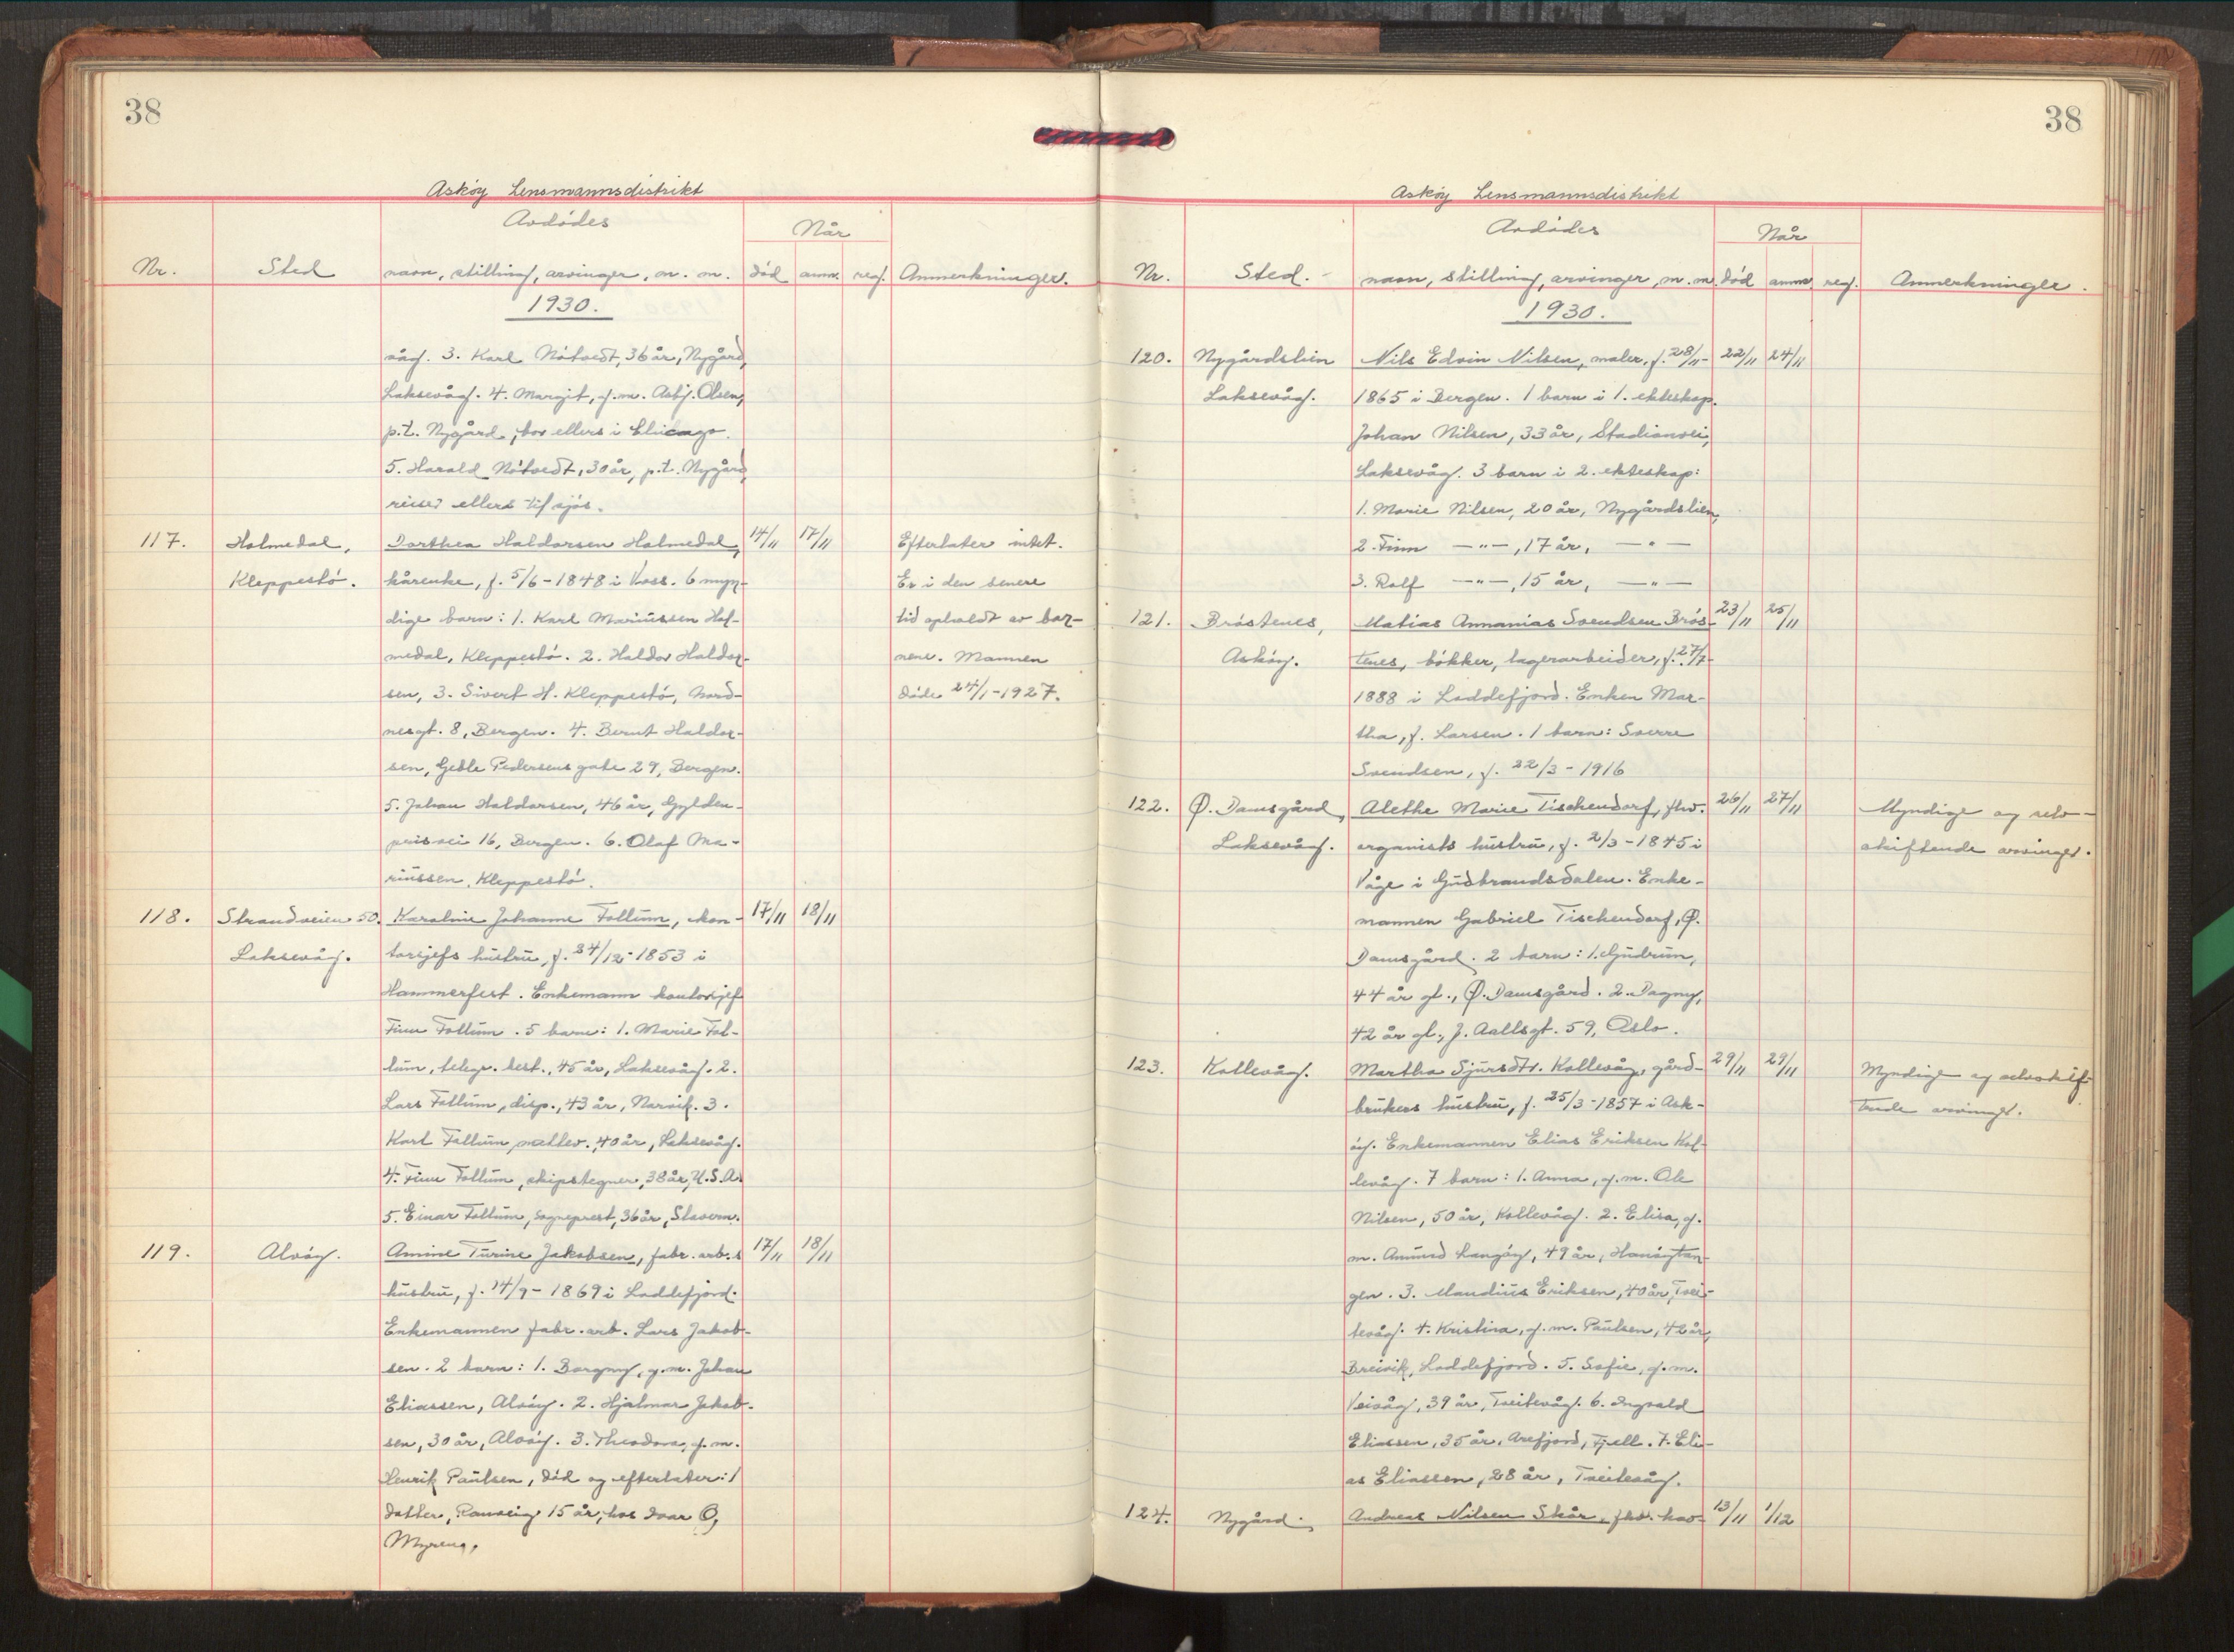 38
Askøy Lensmannsdistrikt
Avdødes
Når
Nr.
Sted
navn, stilling, arvinger, m. m.
død
anm.
reg.
Anmerkninger.
1930.
våg. 3. Karl Nötvedt, 36 år, Nygård,
Laksevåg. 4. Margit, g. m. Asbj. Olsen,
p.t. Nygård, bor ellers i Chicago.
5. Harald Nötvedt, 30 år, p.t. Nygård,
reiser ellers til sjös.
117.
Holmedal,
Kleppestö.
Dorthea Haldorsen Holmedal,
14/11
17/11
kårenke, f. 5/6 - 1848 i Voss. 6 myn-
dige barn: 1. Karl Mariussen Hol-
medal, Kleppestö. 2. Haldor Haldor-
sen, 3. Sivert H. Kleppestö, Nord-
nesgt. 8, Bergen. 4. Bernt Haldor-
sen, Geble Pedersens gate 29, Bergen.
5. Johan Haldorsen, 46 år, Gylden-
prisvei 16, Bergen. 6. Olaf Ma-
riussen, Kleppestö.
Efterlater intet.
Er i den senere
tid opholdt av bar-
nene. Mannen
döde 24/1 - 1927.
118.
Strandveien 50.
Laksevåg.
Karoline Johanne Follum, kon-
17/11
18/11
torsjefs hustru, f. 24/12 - 1853 i
Hammerfest. Enkemann kontorsjef
Finn Follum. 5 barn: 1. Marie Fol-
lum, telegr. best., 45 år, Laksevåg. 2.
Lars Follum, disp., 43 år, Narvik. 3.
Karl Follum, 40 år, Laksevåg.
4. Finn Follum, skipstegner, 38 år, U.S.A.
5. Einar Follum, sogneprest, 36 år, Stavern.
119.
Alvöy.
Amine Turine Jakobsen, fabr. arb.s
17/11
18/11
hustru, f. 14/9 - 1869 i Loddefjord.
Enkemannen fabr. arb. Lars Jakob-
sen. 2 barn: 1. Borgny, g. m. Johan
Eliassen, Alvöy. 2. Hjalmar Jakob-
sen, 30 år, Alvöy. 3. Theodora, g. m.
Henrik Paulsen, död og efterlater: 1
datter, Ranveig 15 år, hos Ivar O,
Myreng.
38
Askøy Lensmannsdistrikt
Avdødes
Når
Nr.
Sted.
navn, stilling, arvinger, m. m.
død
anm.
reg.
Anmerkninger.
1930.
120.
Nygårdslien
Laksevåg.
Nils Edvin Nilsen, maler, f. 28/11 -
22/11
24/11
1865 i Bergen. 1 barn i 1. ekteskap.
Johan Nilsen, 33 år, Stadionvei,
Laksevåg. 3 barn i 2. ekteskap:
1. Marie Nilsen, 20 år, Nygårdslien,
2. Finn —"—, 17 år, —"—
3. Rolf —"—, 15 år, —"—
121.
Bröstenes,
Asköy.
Matias Annanias Svendsen Brös-
23/11
25/11
tenes, bökker, lagerarbeider, f. 27/7 -
1888 i Loddefjord. Enken Mar-
tha, f. Larsen. 1 barn: Sverre
Svendsen, f. 22/3 - 1916
122.
Ø. Damsgård,
Laksevåg.
Alethe Marie Tischendorf, fhv.
26/11
27/11
organists hustru, f. 2/3 - 1845 i
Våge i Gudbrandsdalen. Enke-
mannen Gabriel Tischendorf, Ø.
Damsgård. 2 barn: 1. Gudrun,
44 år gl., Ø. Damsgård. 2. Dagny,
42 år gl., J. Aallsgt. 59, Oslo.
Myndige og selv-
skiftende arvinger.
123.
Kollevåg.
Martha Sjursdtr. Kollevåg, gård-
29/11
29/11
brukers hustru, f. 25/3 - 1857 i Ask-
öy. Enkemannen Elias Eriksen Kol-
levåg. 7 barn: 1. Anna, g. m. Ole
Nilsen, 50 år, Kollevåg. 2. Elisa, g.
m. Amund Langöy, 49 år, Hanöytan-
gen. 3. Mandius Eriksen, 40 år, Tvei-
tevåg. 4. Kristina, g. m. Paulsen, 42 år,
Breivik, Loddefjord. 5. Sofie, g. m.
Veivåg, 39 år, Tveitevåg. 6. Ingvald
Eliassen, 35 år, Arefjord, Fjell. 7. Eli-
as Eliassen, 28 år, Tveitevåg.
Myndige og selvskif-
tende arvinger.
124.
Nygård.
Andreas Nilsen Skår, fhv. hav-
13/11
1/12